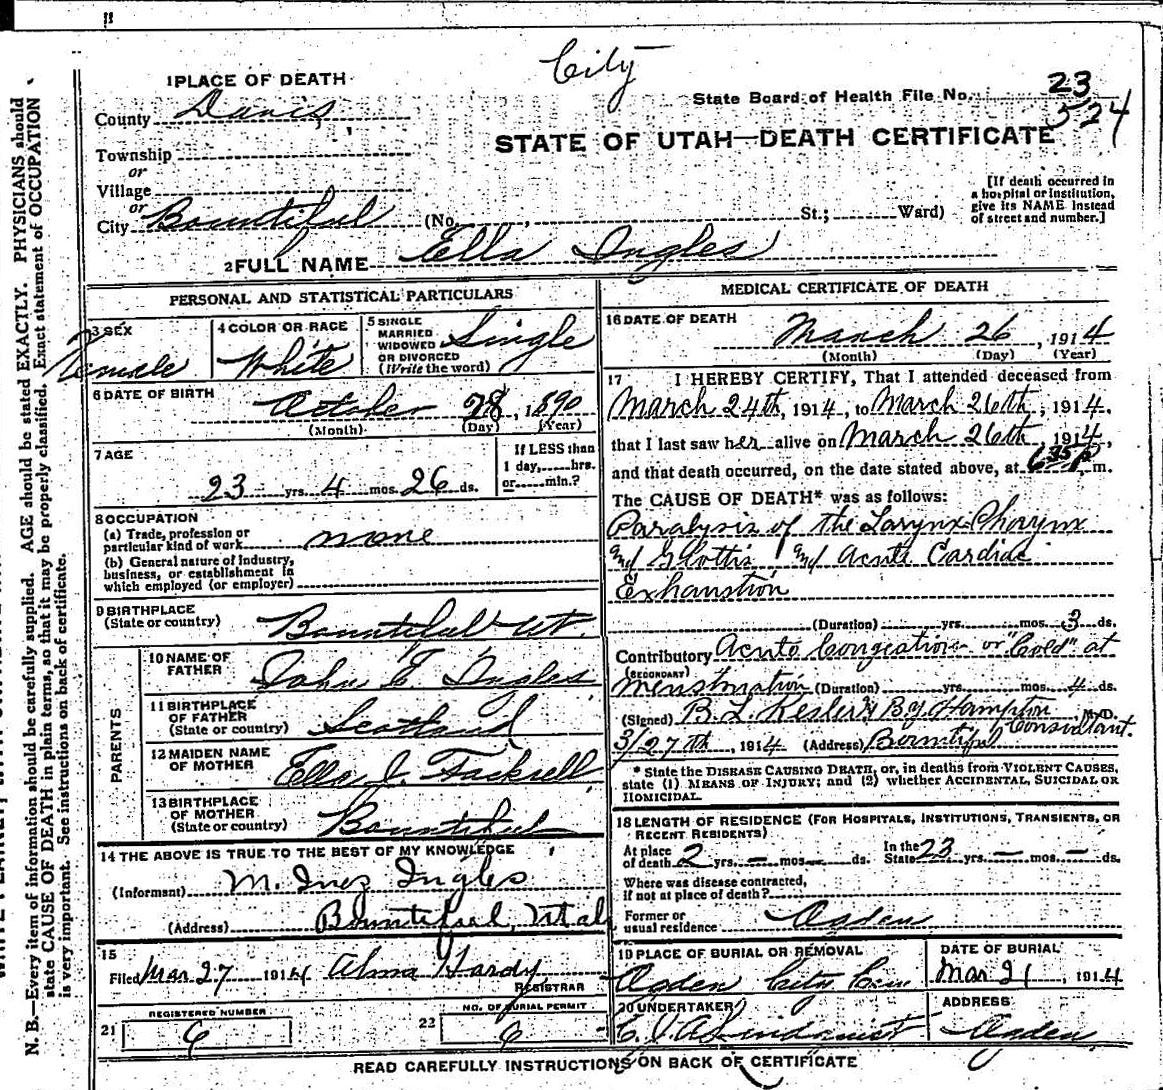 City
1 PLACE OF DEATH
County Davis
State Board of Health File No. 23
524
STATE OF UTAH—DEATH CERTIFICATE
Township
or
Village
or
City Bountiful (No. , St.; Ward)
[If death occurred in a hospital or institution, give its NAME instead of street and number.]
2 FULL NAME Ella Ingles
PERSONAL AND STATISTICAL PARTICULARS
3 SEX Female
4 COLOR OR RACE White
5 SINGLE MARRIED WIDOWED OR DIVORCED (Write the word) Single
6 DATE OF BIRTH October 28, 1890
(Month) (Day) (Year)
7 AGE 23 yrs. 4 mos. 26 ds.
If LESS than 1 day, hrs. or min.?
8 OCCUPATION
(a) Trade, profession or particular kind of work none
(b) General nature of industry, business, or establishment in which employed (or employer)
9 BIRTHPLACE (State or country) Bountiful Ut.
PARENTS
10 NAME OF FATHER John E. Ingles
11 BIRTHPLACE OF FATHER (State or country) Scotland
12 MAIDEN NAME OF MOTHER Ella J. Fackrell
13 BIRTHPLACE OF MOTHER (State or country) Bountiful
14 THE ABOVE IS TRUE TO THE BEST OF MY KNOWLEDGE
(Informant) M. Inez Ingles
(Address) Bountiful, Utah
15
Filed Mar 27 1914 Alma Hardy
REGISTRAR
21 REGISTERED NUMBER 6
22 NO. OF BURIAL PERMIT 6
MEDICAL CERTIFICATE OF DEATH
16 DATE OF DEATH March 26, 1914
(Month) (Day) (Year)
17 I HEREBY CERTIFY, That I attended deceased from
March 24th, 1914, to March 26th, 1914,
that I last saw her alive on March 26th, 1914,
and that death occurred, on the date stated above, at 6 35 P m.
The CAUSE OF DEATH* was as follows:
Paralysis of the Larynx Pharynx
and Glottis and Acute Cardiac
Exhaustion
(Duration) yrs. mos. 3 ds.
Contributory Acute Congestion or "Cold" at
(SECONDARY)
Menstruation (Duration) yrs. mos. 4 ds.
(Signed) B. L. Kesler By Hampton M.D.
Consultant.
3/27th, 1914 (Address) Bountiful
* State the DISEASE CAUSING DEATH, or, in deaths from VIOLENT CAUSES, state (1) MEANS OF INJURY; and (2) whether ACCIDENTAL, SUICIDAL OR HOMICIDAL.
18 LENGTH OF RESIDENCE (FOR HOSPITALS, INSTITUTIONS, TRANSIENTS, OR RECENT RESIDENTS)
At place of death 2 yrs. — mos. — ds. In the State 23 yrs. — mos. — ds.
Where was disease contracted, if not at place of death?
Former or usual residence Ogden
19 PLACE OF BURIAL OR REMOVAL Ogden City Cem
DATE OF BURIAL Mar 21, 1914
20 UNDERTAKER C. J. A. Lindquist
ADDRESS Ogden
READ CAREFULLY INSTRUCTIONS ON BACK OF CERTIFICATE
N. B.—Every item of information should be carefully supplied. AGE should be stated EXACTLY. PHYSICIANS should
state CAUSE OF DEATH in plain terms, so that it may be properly classified. Exact statement of OCCUPATION
is very important. See instructions on back of certificate.